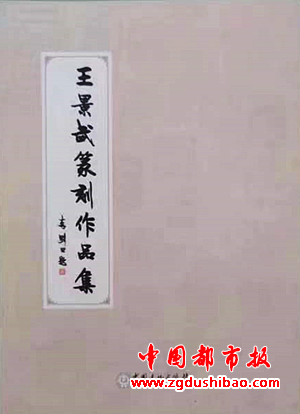 王景武篆刻作品集
中国都市报
www.zgdushibao.com